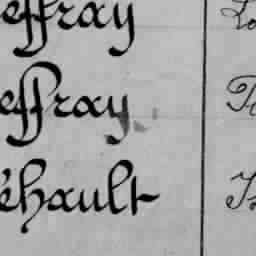 effray
effray
éhault